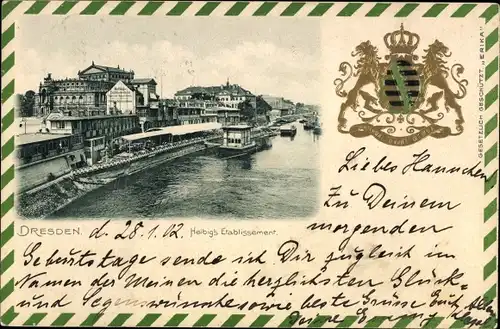 GESETZLICH GESCHÜTZT „ERIKA"
DRESDEN. d. 28.1.02. Helbig's Etablissement.
Liebes Hannchen
Zu Deinem
morgenden
Geburtstage sende ich Dir zugleich im
Namen der Meinen die herzlichsten Glück-
und Segenswünsche sowie beste Grüße Euch Allen
Deine